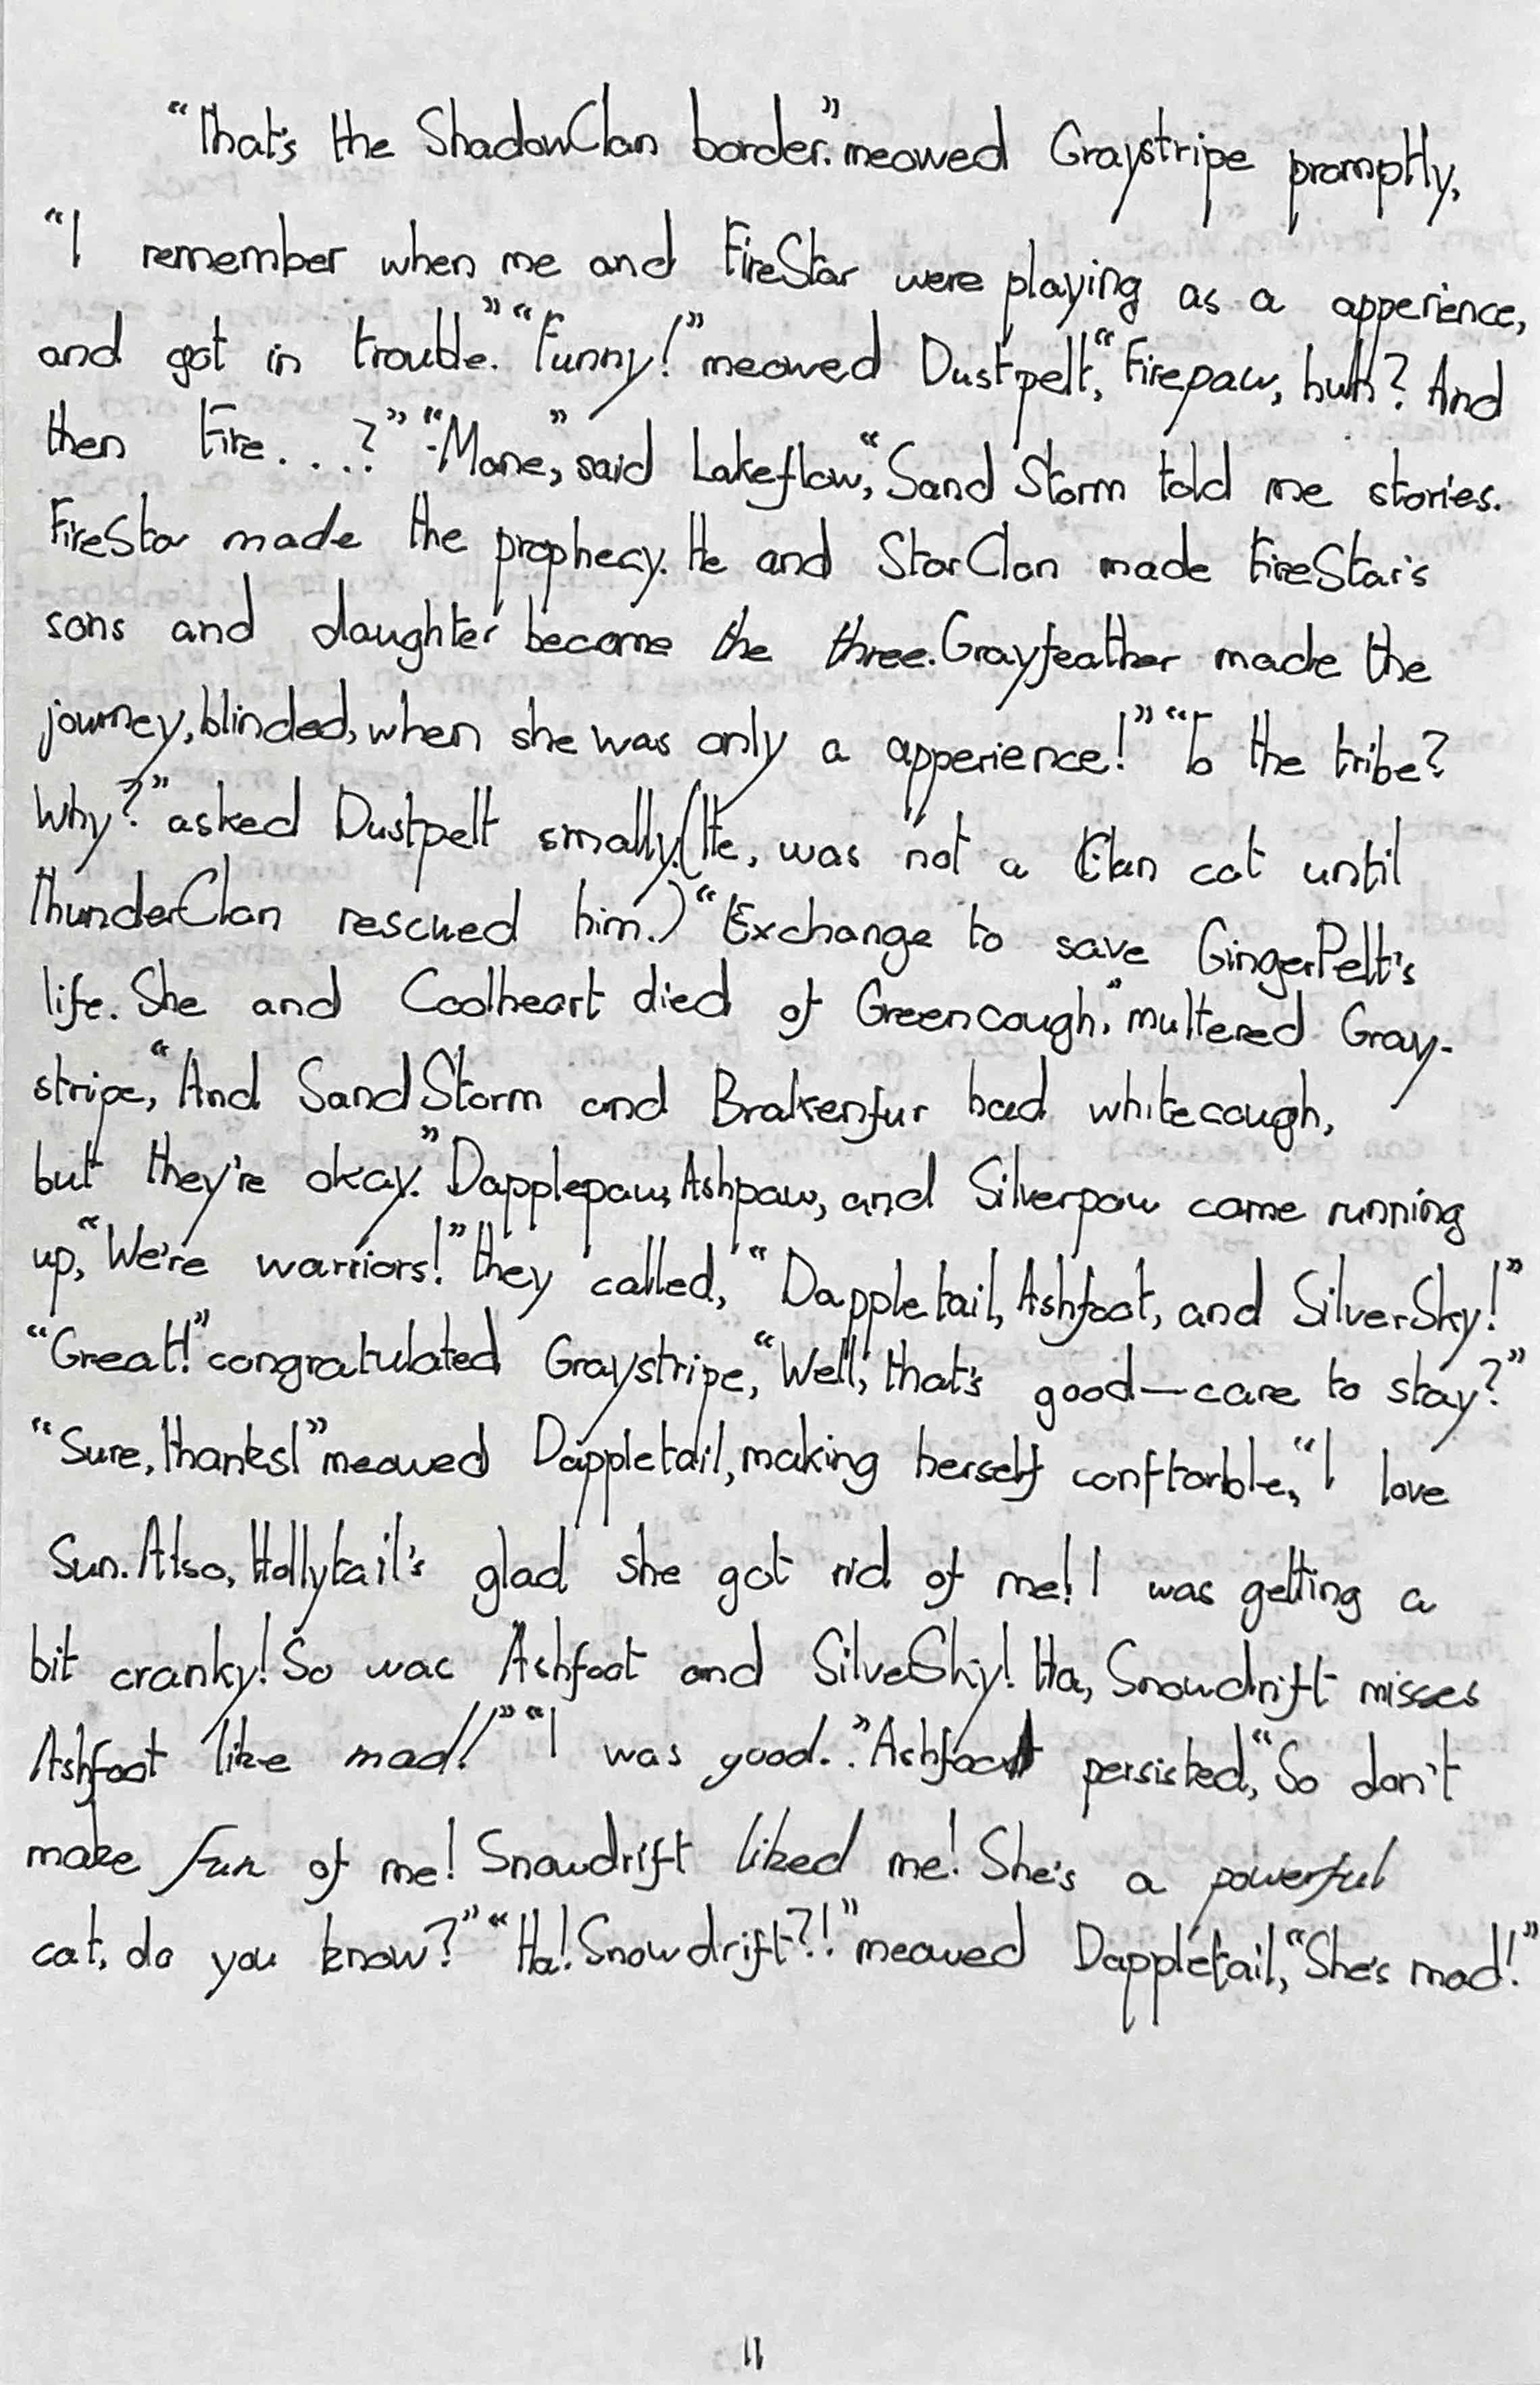 "That's the ShadowClan border." meowed Graystripe promptly,
"I remember when me and FireStar were playing as a apperience,
and got in trouble." "Funny!" meowed Dustpelt, "Firepaw, huh? And
then Fire. . . .?" "-Mane," said Lakeflow, "Sand Storm told me stories.
FireStar made the prophecy. He and StarClan made FireStar's
sons and daughter become the three. Grayfeather made the
journey, blinded, when she was only a apperience!" "To the tribe?
Why?" asked Dustpelt smally. (He, was not a Clan cat until
ThunderClan rescued him.) "Exchange to save GingerPelt's
life. She and Coolheart died of Greencough." muttered Gray-
stripe, "And SandStorm and Brakenfur had whitecough,
but they're okay." Dapplepaw, Ashpaw, and Silverpaw came running
up, "We're warriors!" they called, "Dappletail, Ashfoot, and SilverSky!"
"Great!" congratulated Graystripe, "Well, that's good—care to stay?"
"Sure, thanks!" meowed Dappletail, making herself conftorble, "I love
Sun. Also, Hollytail's glad she got rid of me! I was getting a
bit cranky! So was Ashfoot and SilveSky! Ha, Snowdrift misses
Ashfoot like mad!" "I was good." Ashfoot persisted, "So don't
make fun of me! Snowdrift liked me! She's a powerful
cat, do you know?" "Ha! Snowdrift?!" meowed Dappletail, "She's mad!"
11